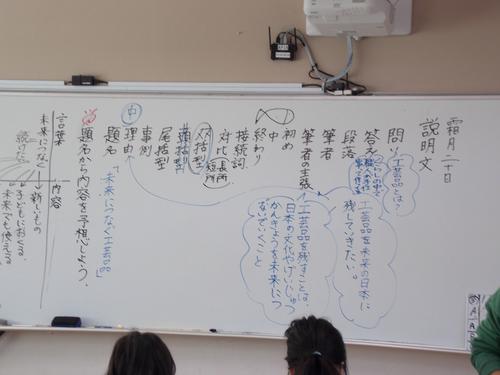 霜月二十日
説明文
問い
答え
段落
筆者
筆者の主張
初め
中
終わり
接続詞
対比
長所
短所
双括型
頭括型
尾括型
事例
理由
題名
「未来につなぐ工芸品」
題名から内容を予想しよう。
工芸品とは?
工芸品を未来の日本に
残していきたい。
工芸品を残すことは、
日本の文化やげいじゅつ
かんきょうを未来につ
ないでいくこと
中
言葉
内容
未来につなぐ
→新しいもの
続けたい
子どもにおくる。
未来でも使える